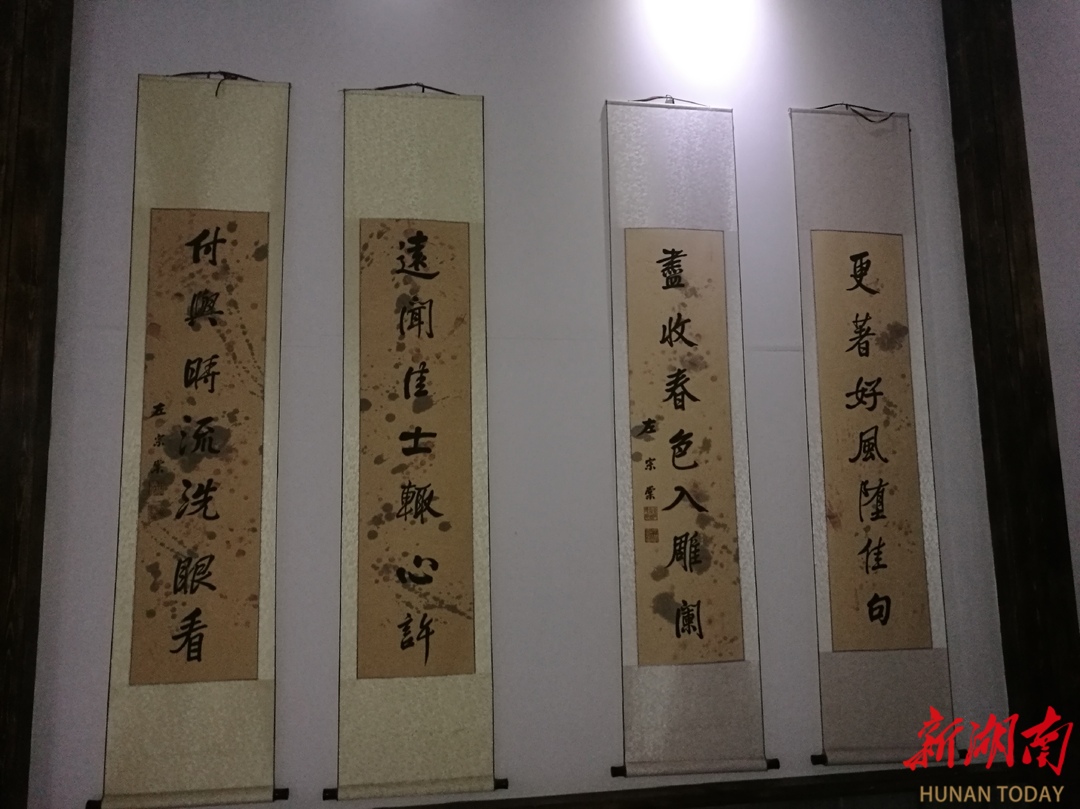 更著好風墮佳句
盡收春色入雕闌
左宗棠
遠聞佳士輒心許
付與時流洗眼看
左宗棠
新湖南
HUNAN TODAY